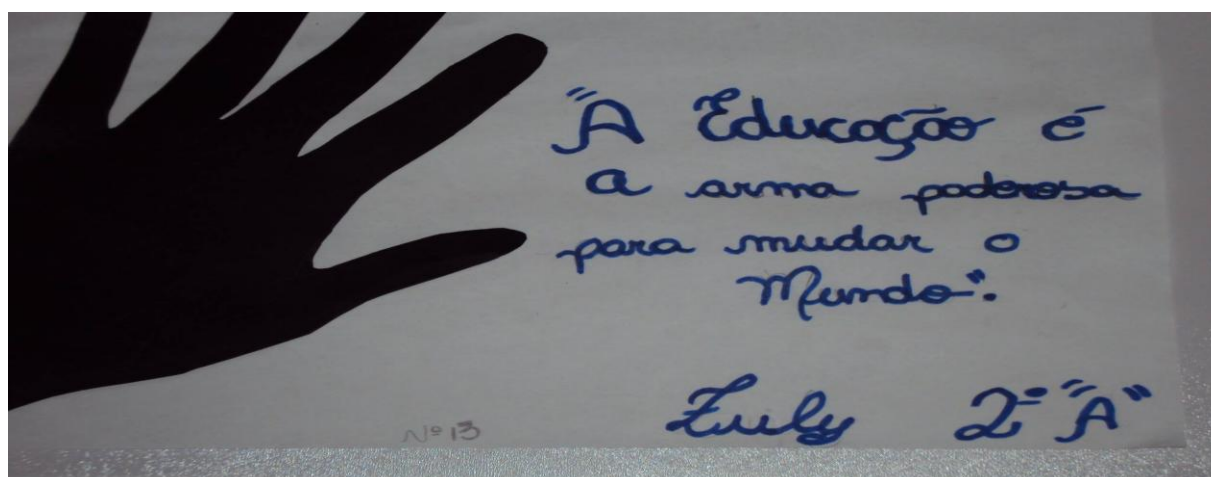 "A Educação é
a arma poderosa
para mudar o
Mundo".
Zuly 2º "A"
Nº 13